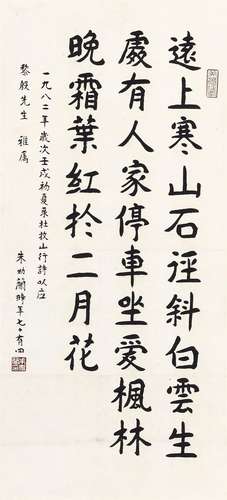 遠上寒山石徑斜白雲生
處有人家停車坐愛楓林
晚霜葉紅於二月花
一九八二年歲次壬戌初夏录杜牧山行詩以应
黎毅先生 雅属
朱幼蘭時年七十有四